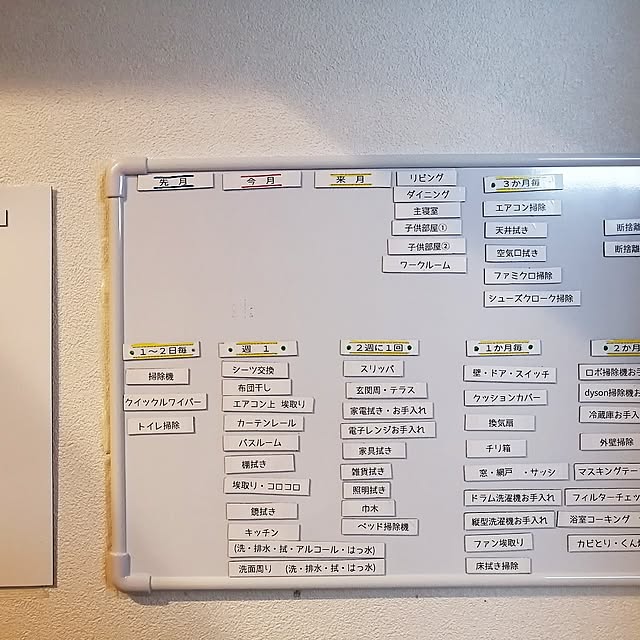 先 月
今 月
来 月
リビング
ダイニング
主寝室
子供部屋①
子供部屋②
ワークルーム
3か月毎
エアコン掃除
天井拭き
空気口拭き
ファミクロ掃除
シューズクローク掃除
断捨離
断捨離
1〜2日毎
掃除機
クイックルワイパー
トイレ掃除
週 1
シーツ交換
布団干し
エアコン上 埃取り
カーテンレール
バスルーム
棚拭き
埃取り・コロコロ
鏡拭き
キッチン
(洗・排水・拭・アルコール・はっ水)
洗面周り (洗・排水・拭・はっ水)
2週に1回
スリッパ
玄関周・テラス
家電拭き・お手入れ
電子レンジお手入れ
家具拭き
雑貨拭き
照明拭き
巾木
ベッド掃除機
1か月毎
壁・ドア・スイッチ
クッションカバー
換気扇
チリ箱
窓・網戸 ・サッシ
ドラム洗濯機お手入れ
縦型洗濯機お手入れ
ファン埃取り
床拭き掃除
2か月
ロボ掃除機お手
dyson掃除機お
冷蔵庫お手入
外壁掃除
マスキングテー
フィルターチェッ
浴室コーキング
カビとり・くん